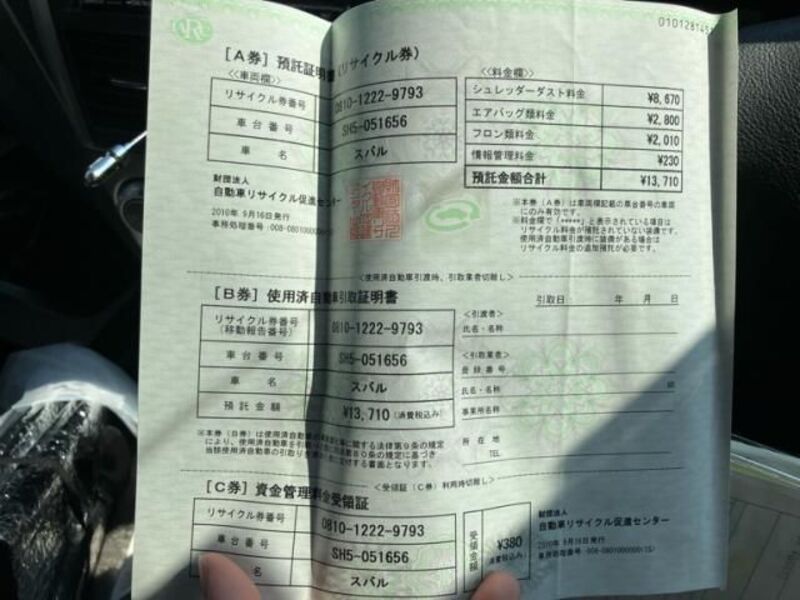 0101281455
[A券] 預託証明書(リサイクル券)
<<車両欄>>
リサイクル券番号 0810-1222-9793
車台番号 SH5-051656
車名 スバル
<<料金欄>>
シュレッダーダスト料金 ¥8,670
エアバッグ類料金 ¥2,800
フロン類料金 ¥2,010
情報管理料金 ¥230
預託金額合計 ¥13,710
財団法人
自動車リサイクル促進センター
2010年 9月16日発行
※本券(A券)は車両欄記載の車台番号の車両
にのみ有効です。
※料金欄で「*****」と表示されている項目は
リサイクル料金が預託されていない装備です。
使用済自動車引渡時に装備がある場合は
リサイクル料金の追加預託が必要です。
<使用済自動車引渡時、引取業者切離し>
[B券] 使用済自動車引取証明書
引取日: 年 月 日
リサイクル券番号
(移動報告番号) 0810-1222-9793
車台番号 SH5-051656
車名 スバル
預託金額 ¥13,710 (消費税込み)
<引渡者>
氏名・名称
<引取業者>
登録番号
氏名・名称
事業所名称
所在地
TEL
※本券(B券)は使用済自動車の
に関する法律第9条の規定
により、使用済自動車を引取
第80条の規定に基づき
当該使用済自動車の引取りを
する書面となります。
<受領証(C券)利用時切離し>
[C券] 資金管理料金受領証
リサイクル券番号 0810-1222-9793
車台番号 SH5-051656
名 スバル
受領金額 ¥380
消費税込み
財団法人
自動車リサイクル促進センター
2010年 9月16日発行